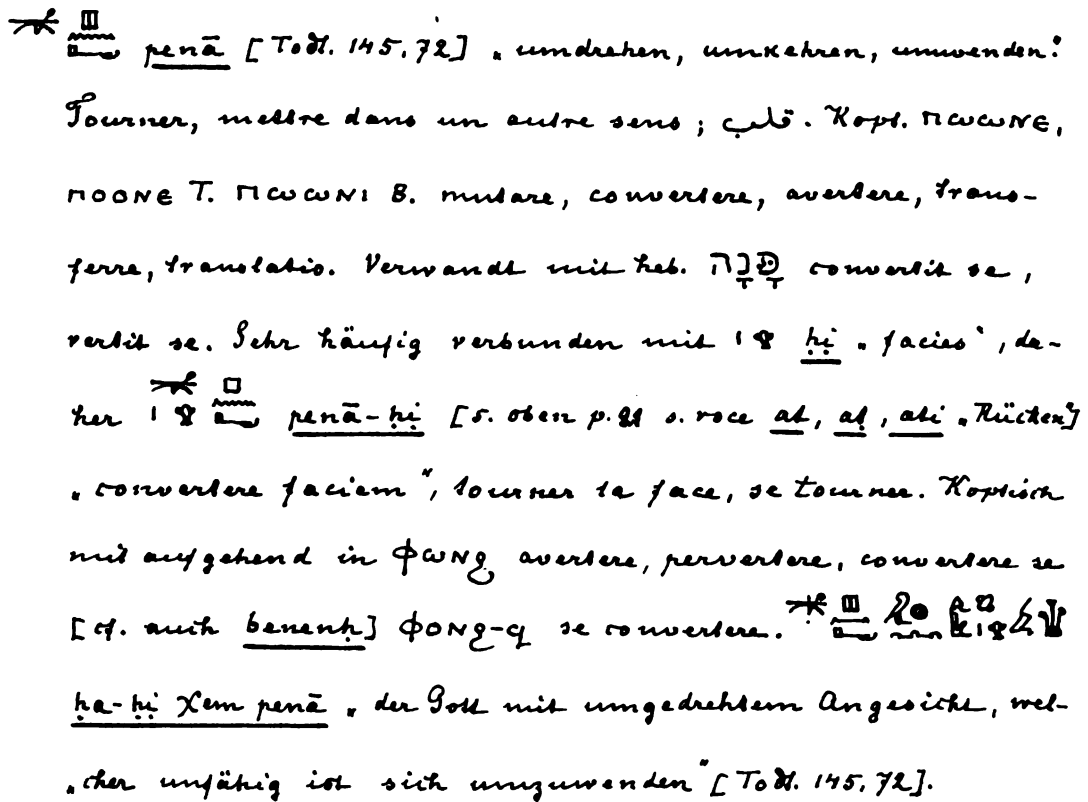 penā [Todt. 145,72] „umdrehen, umkehren, umwenden.“
Tourner, mettre dans un autre sens; قلب. Kopt. ⲡⲱⲱⲛⲉ,
ⲡⲟⲟⲛⲉ T. ⲡⲱⲱⲛⲓ B. mutare, convertere, avertere, trans-
ferre, translatio. Verwandt mit heb. פָּנָה convertit se,
vertit se. Sehr häufig verbunden mit ḥi̤ „facies“, da-
her penā-ḥi̤ [s. oben p. s. voce at, aṭ, ati „Rücken“]
„convertere faciem“, tourner la face, se tourner. Koptisch
mit aufgehend in ⲫⲱⲛϩ avertere, pervertere, convertere se
[cf. auch benenḥ] ⲫⲟⲛϩ-ϥ se convertere.
ḥa-ḥi̤ χem penā „der Gott mit umgedrehtem Angesicht, wel-
„cher unfähig ist sich umzuwenden“ [Todt. 145,72].